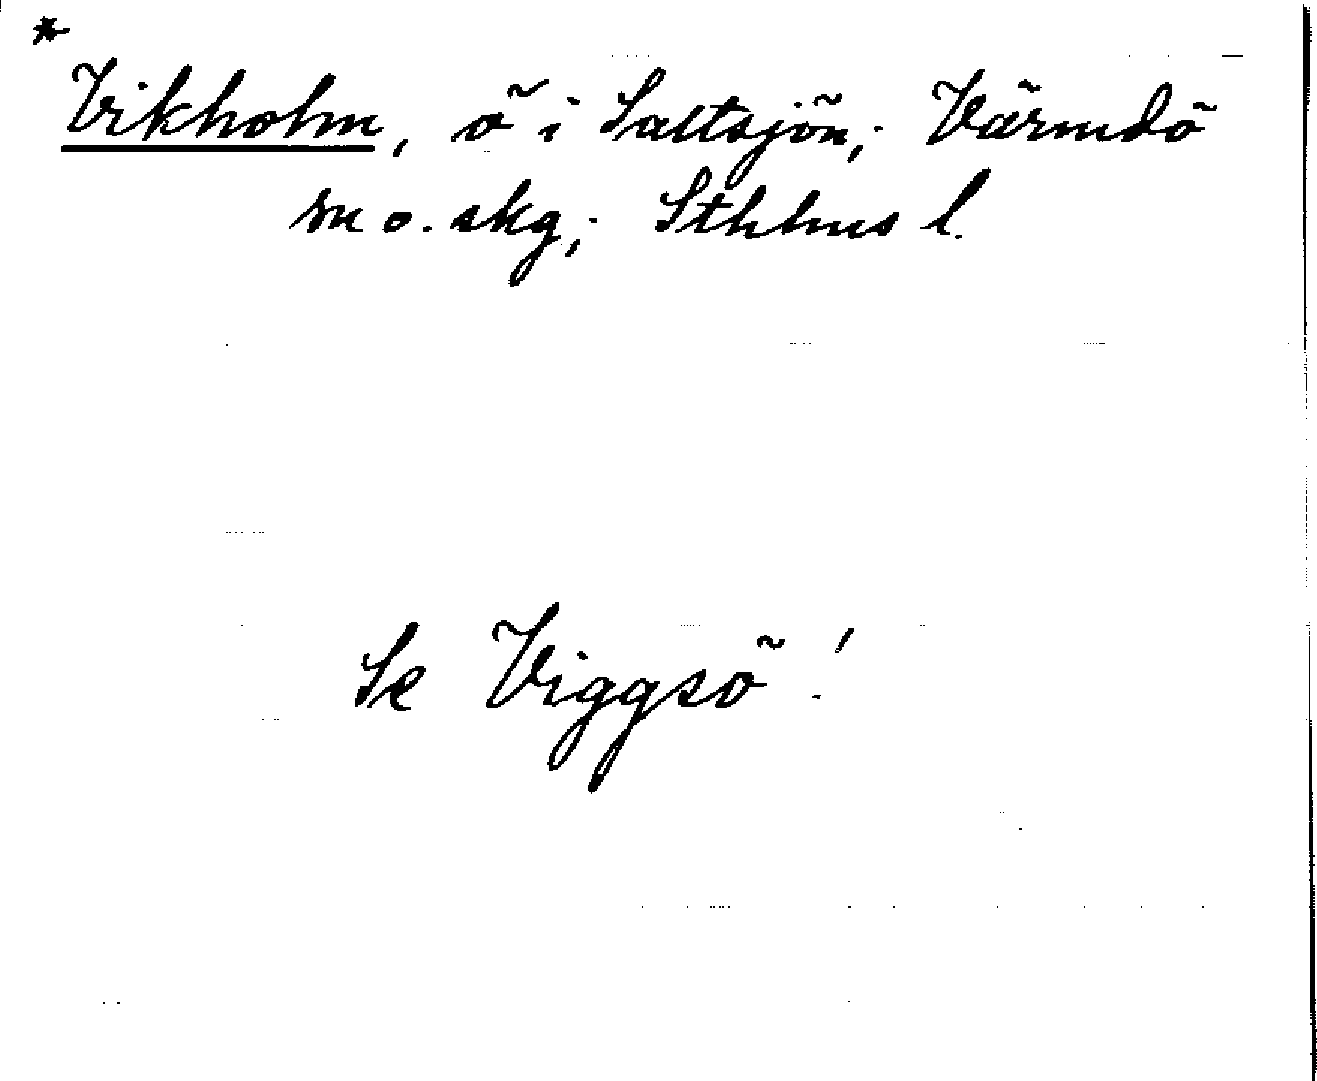 *
Vikholm, ö i Saltsjön; Värmdö
m o. skg; Sthhms l.
Se Viggsö!